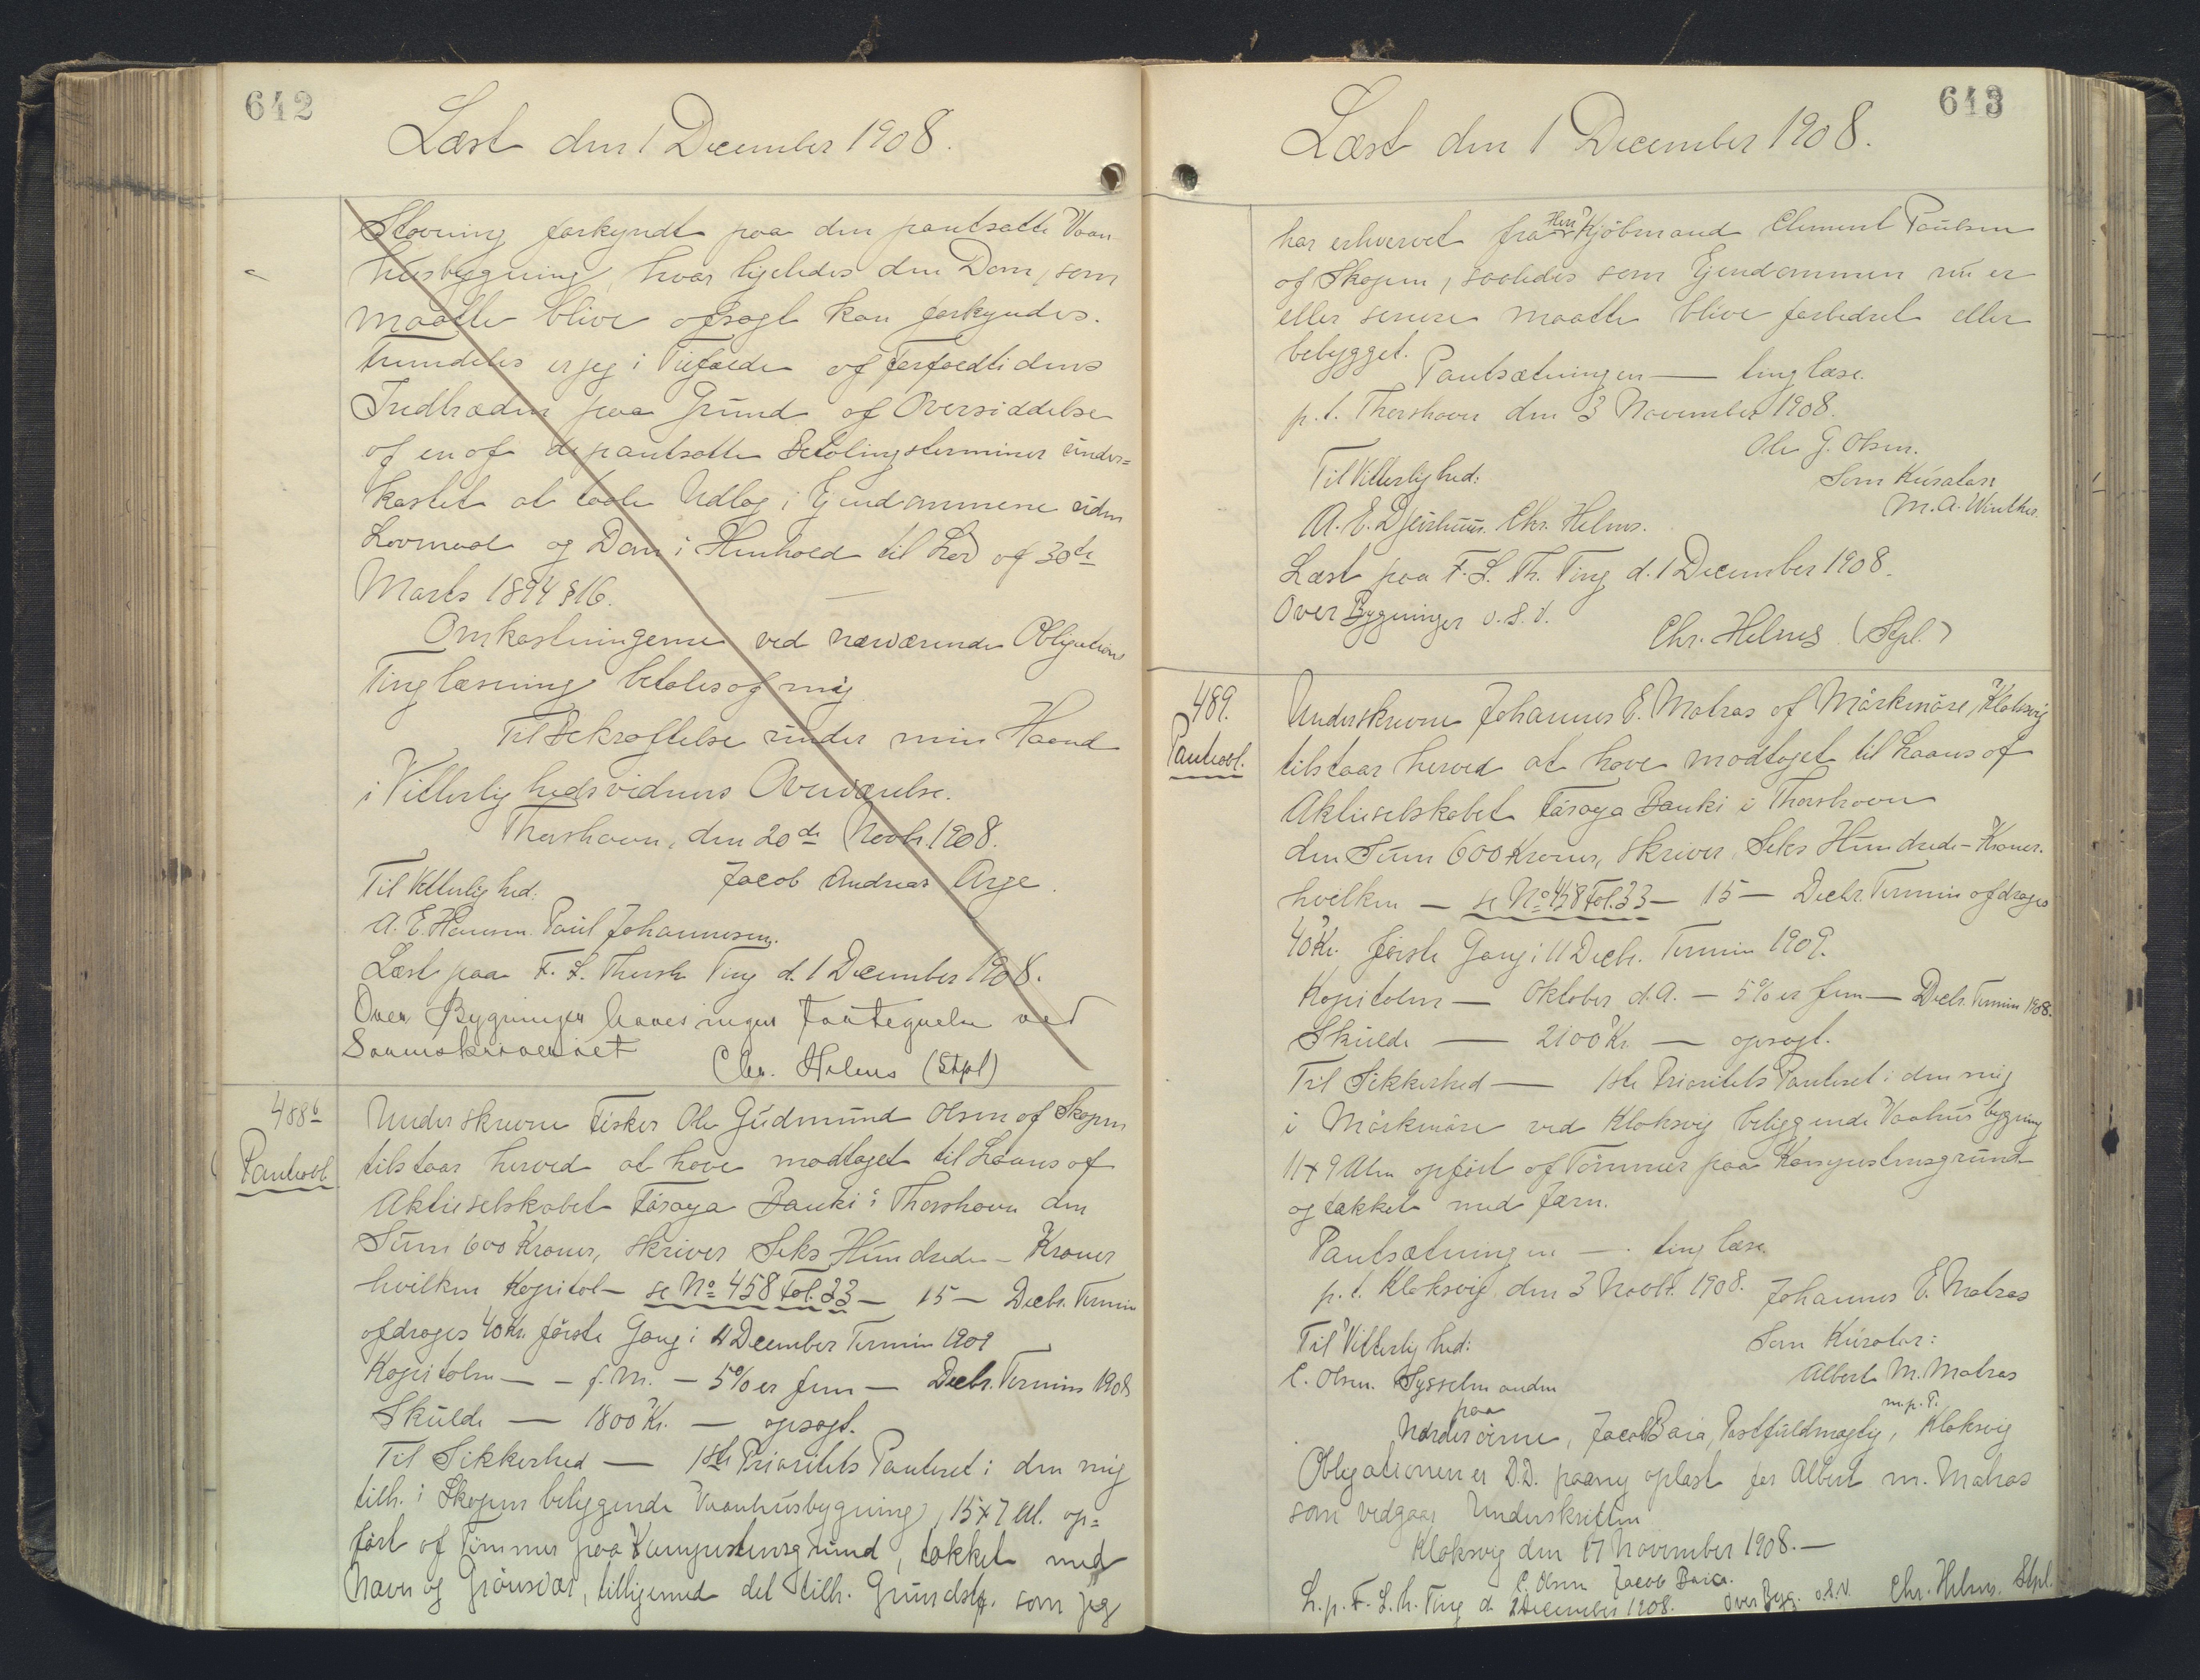 642
Læst den 1 December 1908.
Stævning forkyndt paa den pantsatte Vaan
husbygning, hvor ligeledes den Dom, som
maatte blive afsagt kan forkyndes.
Fremdeles er jeg i Tilfælde af Forfaldtidens
Indtræden paa Grund af Oversiddelse
af en af de pantsatte Betalingsterminer under=
kastet at taale Udlæg i Ejendommene uden
Lovmaal og Dom i Henhold til Lov af 30te
Marts 1894 § 16.
Omkostningerne ved nærværende Obligation
Tinglæsning betales af mig
Til Bekræftelse under min Haand
i Vitterlighedsvidners Overværelse.
Thorshavn, den 20de Novbr. 1908.
Til Vitterlighed: Jacob Andreas Arge.
A. E. Hansen. Poul Johannesen.
Læst paa F. L. Thorsh. Ting d. 1 December 1908.
Over Bygninger haves ingen Fortegnelse ved
Sorenskriveriet
Chr. Helms (Stpl)
488b
Panteobl.
Underskrevne Fisker Ole Gudmund Olsen af Skopen
tilstaar herved at have modtaget til Laans af
Aktieselskabet Föroya Banki i Thorshavn den
Sum 600 Kroner, skriver Seks Hundrede - Kroner
hvilken Kapital - se No 458 Fol. 33 - 15 - Decbr. Termin
afdrages 40 Kr. første Gang i 11 December Termin 1909
Kapitalen - - f. M. - 5% er fem - Decbr. Termin 1908
Skulde - 1800 Kr. - opsagt.
Til Sikkerhed - 1ste Prioritets Panteret i den mig
tilh. i Skopen beliggende Vaanhusbygning, 15 x 7 Al. op=
ført af Tømmer paa Kongustensgrund, takket med
Næver og Grönsvær, tilligemed det tilh. Grundst. som jeg
613
Læst den 1 December 1908.
har erhvervet fra Herr Kjöbmand Clement Poulsen
af Skopen, saaledes som Ejendommen nu er
eller senere maatte blive forbedret eller
bebygget.
Pantsætningen - tinglæse.
p. t. Thorshavn den 3 November 1908.
Ole G. Olsen.
Til Vitterlighed: Som Kurator:
M. A. Winther.
A. E. Djurhuus. Chr. Helms.
Læst paa F. L. Th. Ting d. 1 December 1908.
Over Bygninger o. s. v.
Chr. Helms (Stpl.)
489.
Panteobl.
Underskrevne Johannes E. Matras af Mörkmöre, Klaksvig
tilstaar herved at have modtaget til Laans af
Aktieselskabet Föroya Banki i Thorshavn
den Sum 600 Kroner, skriver Seks Hundrede - Kroner.
hvilken - se No 458 Fol. 33 - 15 - Decbr. Termin afdrages
40 Kr. første Gang i 11 Decbr. Termin 1909.
Kapitalen - Oktober d. A. - 5% er fem - Decbr. Termin 1908.
Skulde - 2100 Kr. - opsagt.
Til Sikkerhed - 1ste Prioritets Panteret i den mig
i Mörkmöre ved Klaksvig beliggende Vaahusbygning
11 x 9 Alen opført af Tømmer paa Kongustensgrund
og takket med Jærn.
Pantsætningen - . tinglæse.
p. t. Klaksvig den 3 Novbr. 1908. Johannes E. Matras
Til Vitterlighed: Som Kurator:
C. Olsen. Sysselmanden Albert M. Matras
m. p. P.
paa
Norderöerne, Jacob Baia, Postfuldmægtig, Klaksvig
Obligationen er D.D. paany oplæst for Albert M. Matras
som vedgaar Underskriften
Klaksvig den 17 November 1908. -
C. Olsen Jacob Baia.
L. p. F. L. Th. Ting d. 2 December 1908. Over Byg. o. s. v. Chr. Helms. Stpl.